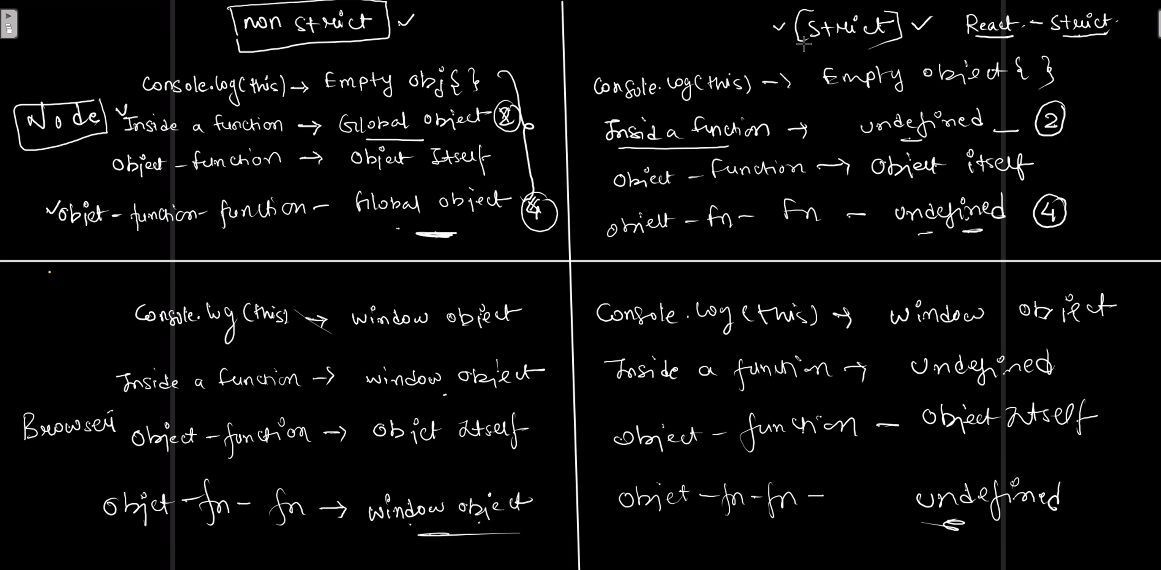 non strict
Console.log(this) → Empty obj{ }
Node
Inside a function → Global object 2
Object - function → Object Itself
objet - function - function - Global object 4
[Strict] React - Strict
Console.log(this) → Empty object { }
Inside a function → undefined 2
Object - Function → Object itself
objelt - fn - fn - undefined 4
Console.log(this) → window object
Inside a function → window object
Browser
Object - function → Objct itself
Objct - fn - fn → window object
Console.log(this) → window object
Inside a function → undefined
Object - function - Object itself
Objet - fn - fn - undefined